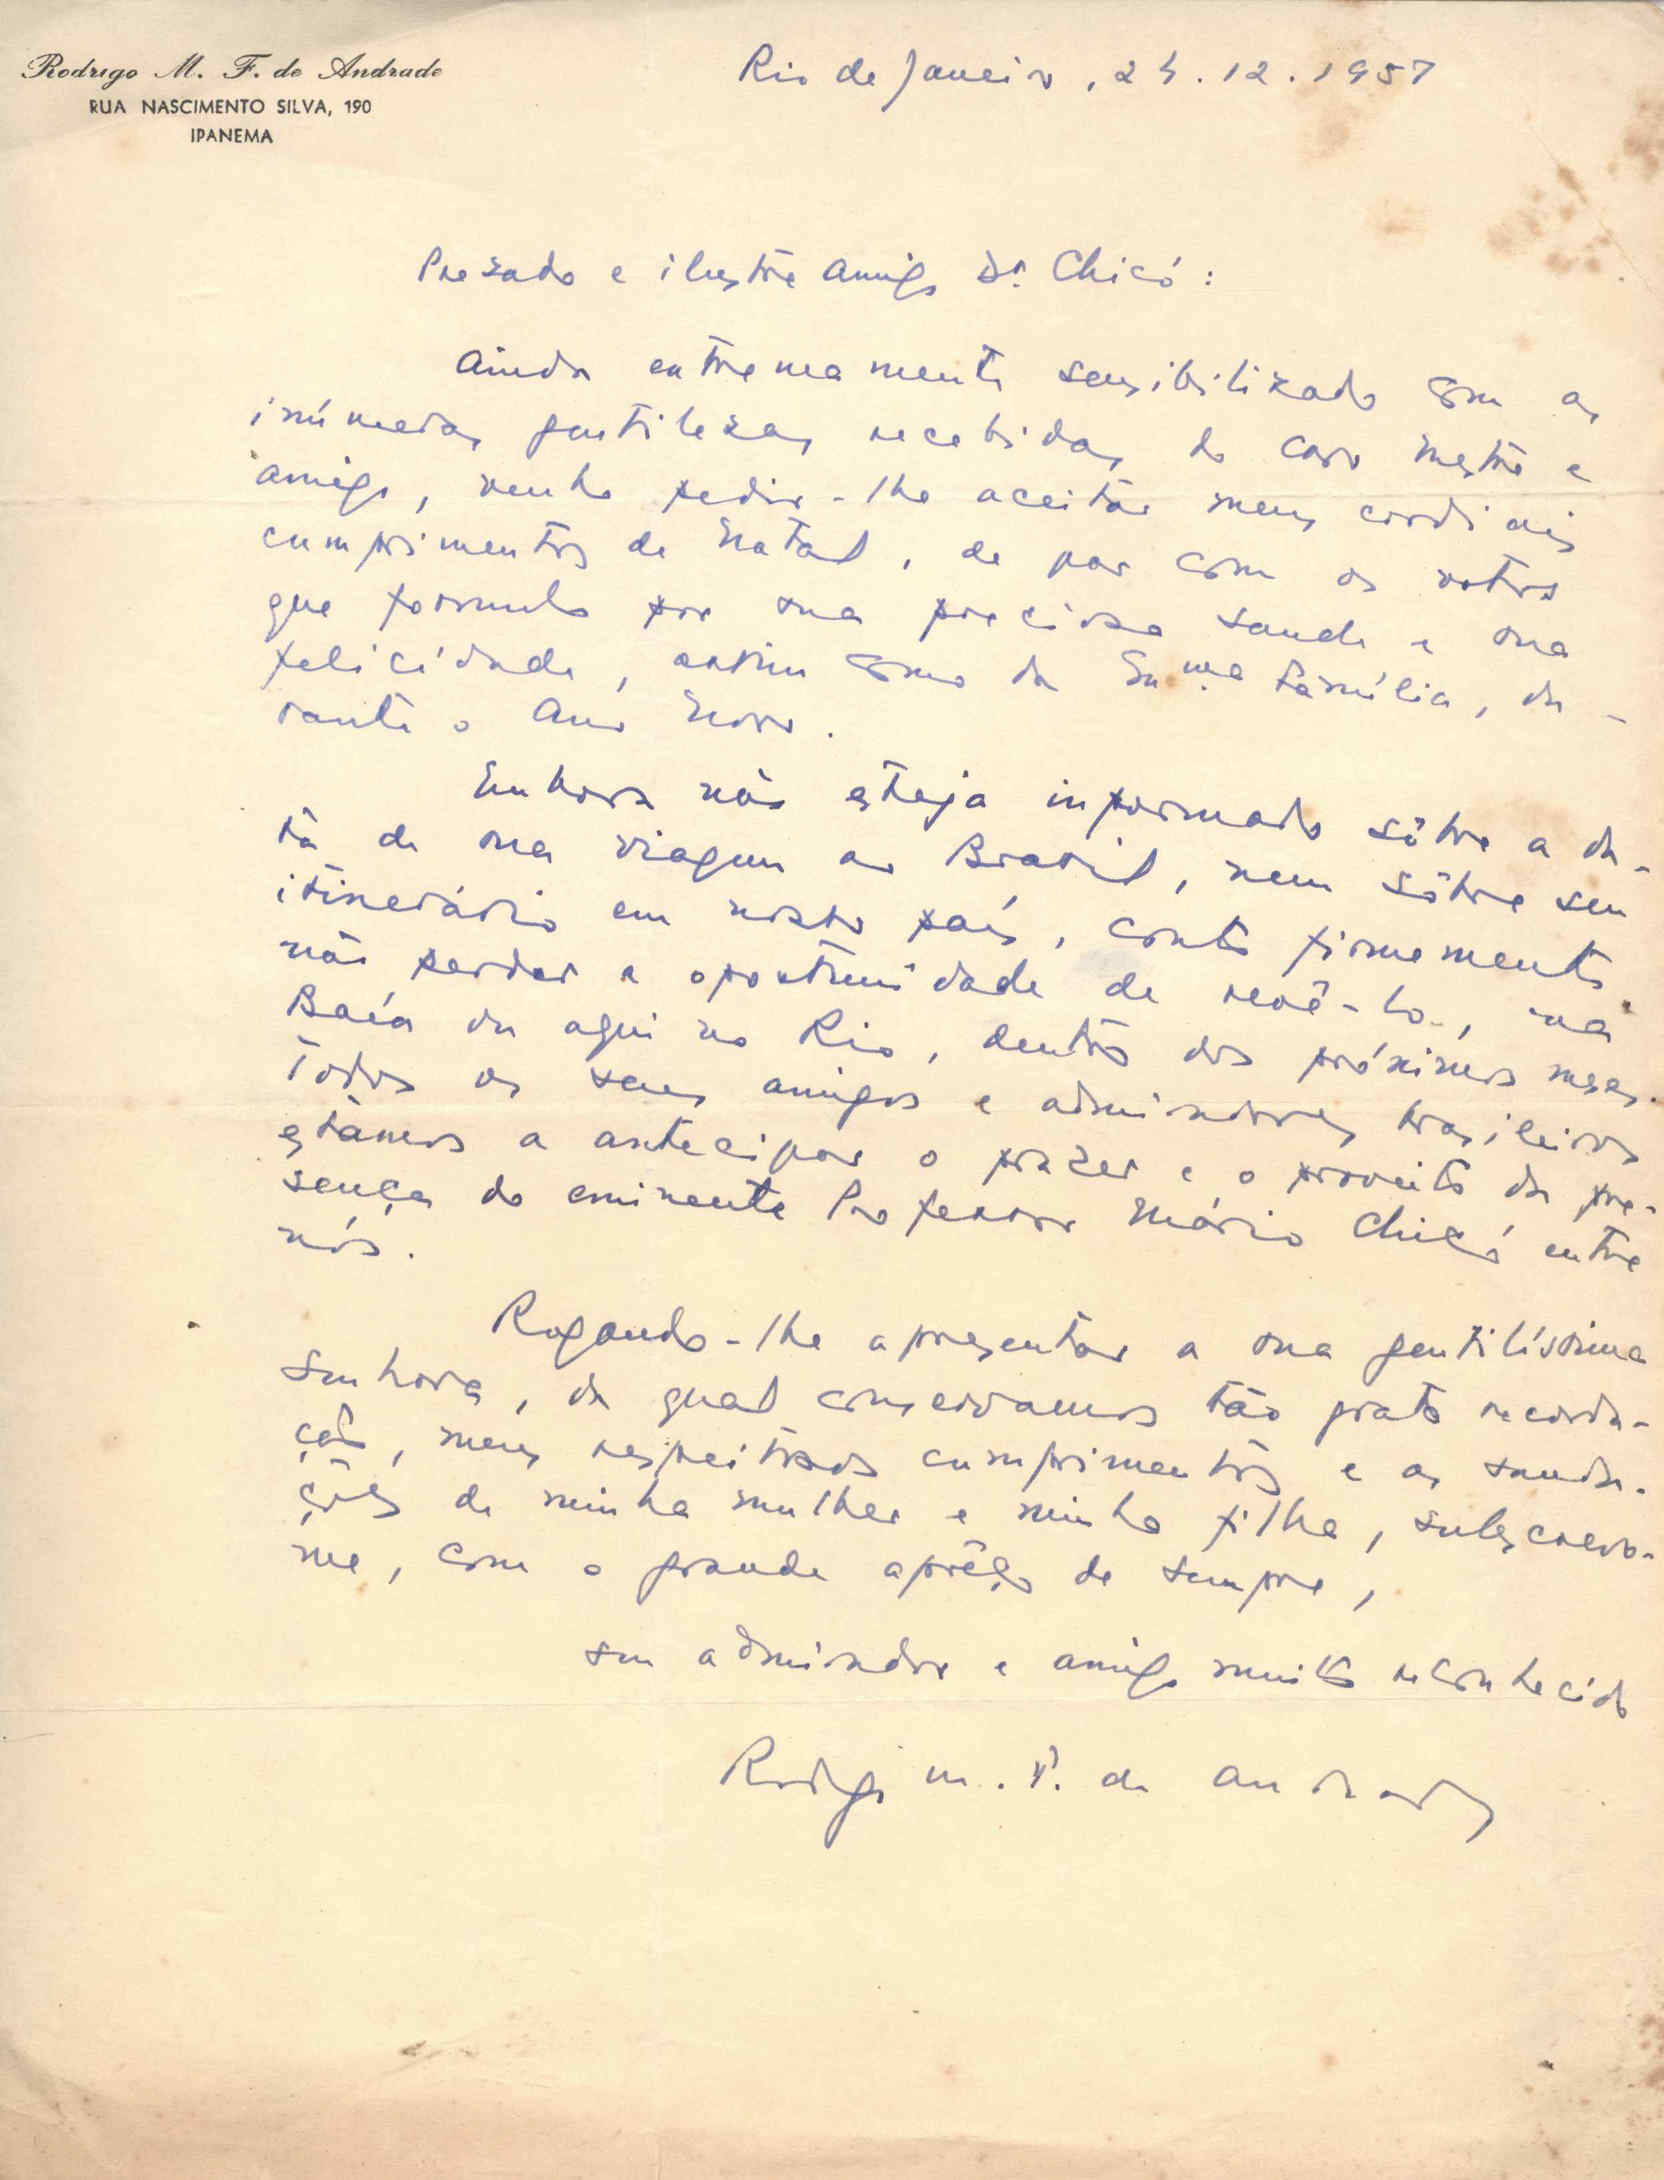 Rodrigo M. F. de Andrade
RUA NASCIMENTO SILVA, 190
IPANEMA
Rio de Janeiro, 24.12.1957
Prezado e ilustre amigo Dr. Chicó:
Ainda extremamente sensibilizado com as
inúmeras gentilezas recebidas do caro mestre e
amigo, venho pedir-lhe aceitar meus cordiais
cumprimentos de Natal, de par com os votos
que formulo por sua preciosa saude e sua
felicidade, assim como da Exma. família, du-
rante o Ano Novo.
Embora não esteja informado sôbre a da-
ta de sua viagem ao Brasil, nem sôbre seu
itinerário em nosso país, conto firmemente
não perder a oportunidade de revê-lo, na
Baía ou aqui no Rio, dentro dos próximos meses.
Todos os seus amigos e admiradores brasileiros
estamos a antecipar o prazer e o proveito da pre-
sença do eminente Professor Mário Chicó entre
nós.
Rogando-lhe apresentar a sua gentilíssima
Senhora, da qual conservamos tão grata recorda-
ção, meus respeitosos cumprimentos e as sauda-
ções de minha mulher e minha filha, subscrevo-
me, com o grande aprêço de sempre,
seu admirador e amigo muito reconhecido
Rodrigo M. F. de Andrade